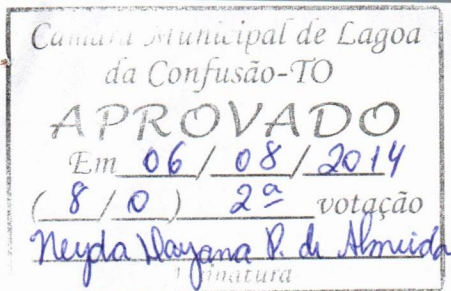 Câmara Municipal de Lagoa
da Confusão-TO
APROVADO
Em 06 / 08 / 2014
( 8 / 0 ) 2ª votação
Neyda Dayana P. de Almeida
Assinatura